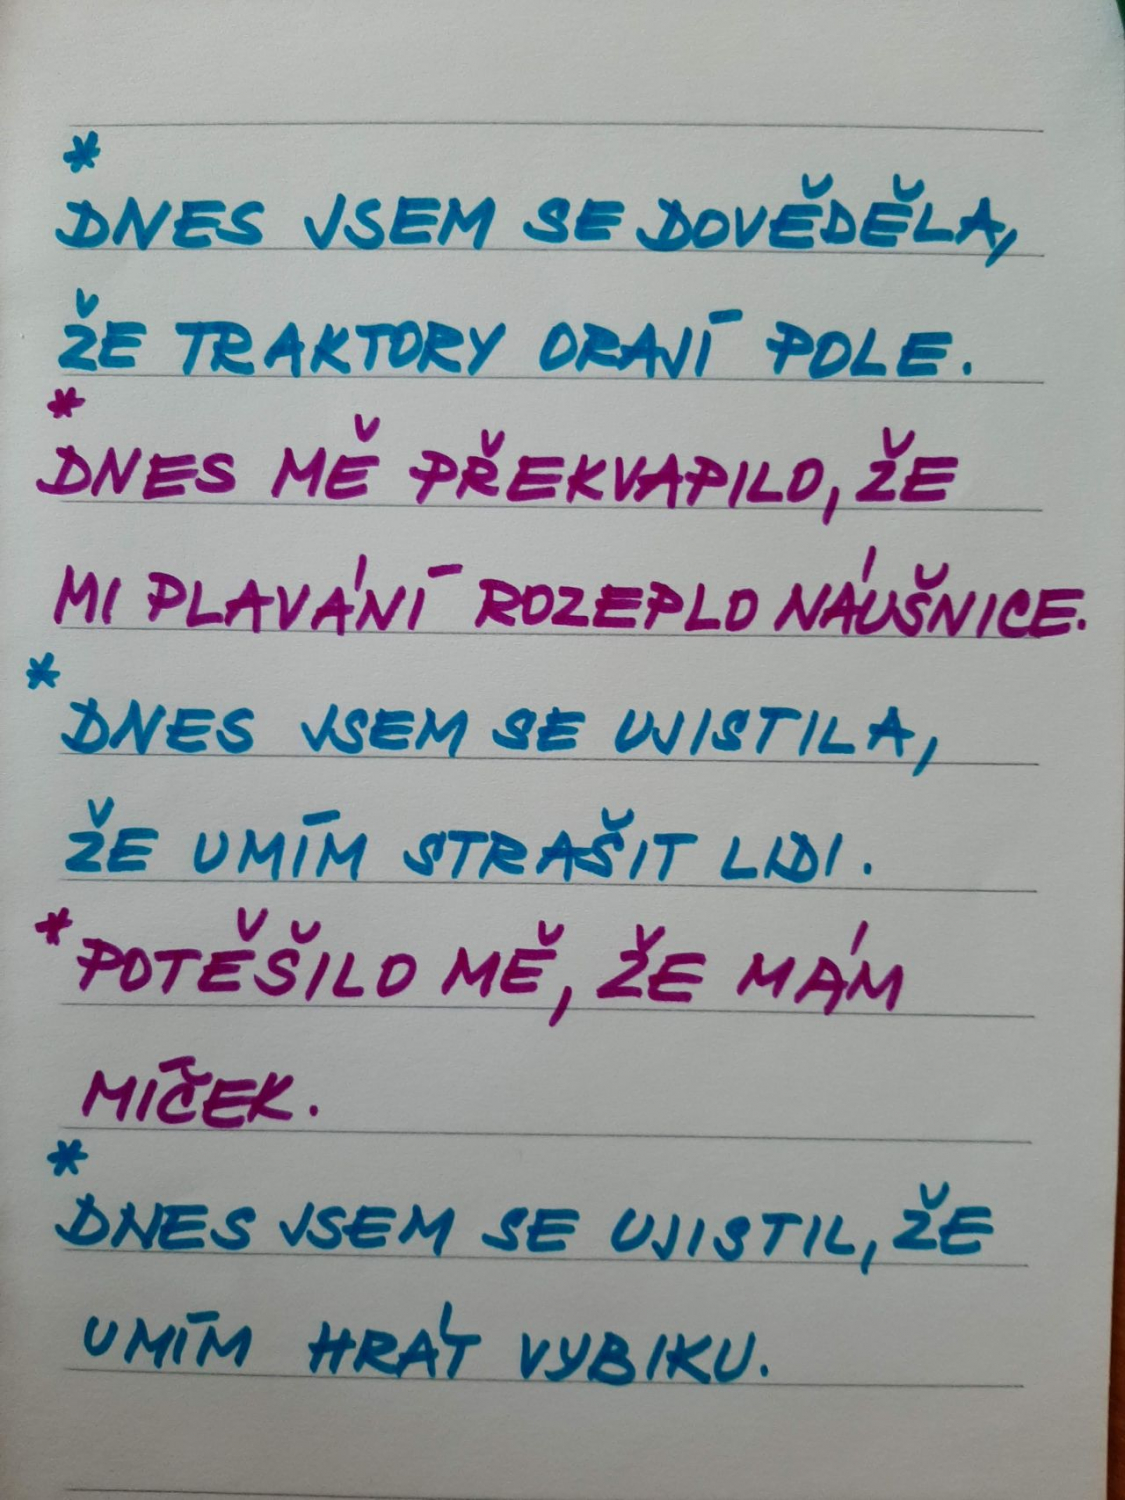 *
DNES JSEM SE DOVĚDĚLA,
ŽE TRAKTORY ORAJÍ POLE.
*
DNES MĚ PŘEKVAPILO, ŽE
MI PLAVÁNÍ ROZEPLO NÁUŠNICE.
*
DNES JSEM SE UJISTILA,
ŽE UMÍM STRAŠIT LIDI.
* POTĚŠILO MĚ, ŽE MÁM
MÍČEK.
*
DNES JSEM SE UJISTIL, ŽE
UMÍM HRÁT VYBIKU.